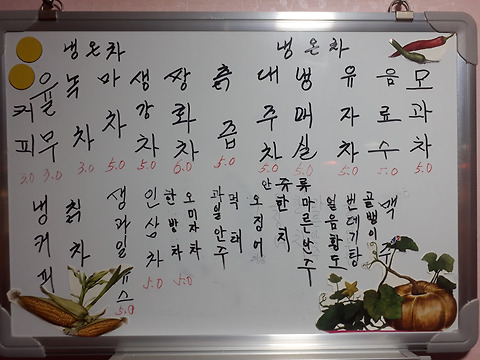 냉온차
냉온차
커피 3.0
율무 3.0
녹차 3.0
마차 5.0
생강차 5.0
쌍화차 6.0
칡즙 5.0
대추차 5.0
냉매실 5.0
유자차 5.0
음료수 5.0
모과차 5.0
냉커피
칡차
생과일쥬스 5.0
인삼차 5.0
한방차 5.0
오미자차
과일안주
먹태
오징어
안주류
한치
마른안주
얼음황도
번데기탕
골뱅이
맥주